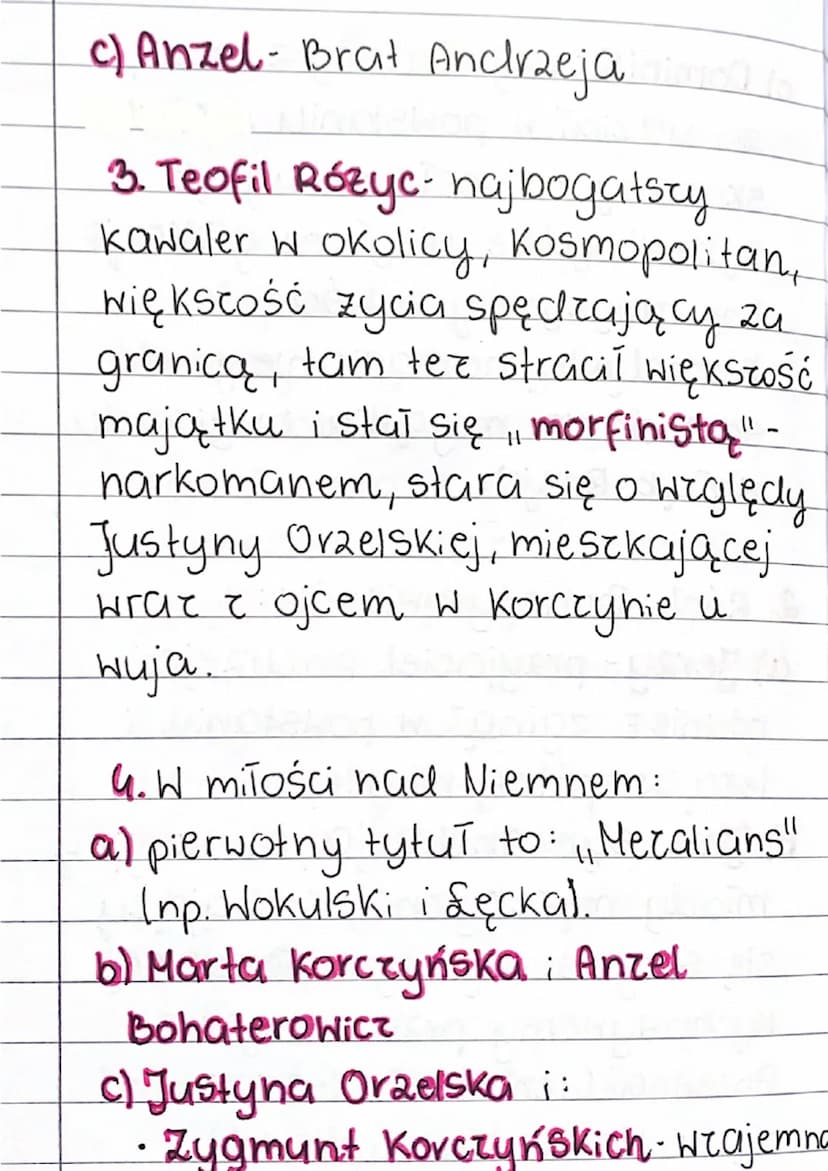 c) Anzel - Brat Andrzeja
3. Teofil Różyc - najbogatszy
kawaler w okolicy, Kosmopolitan,
większość życia spędzający za
granicą, tam też stracił większość
majątku i stał się „morfinistą" -
narkomanem, stara się o względy
Justyny Orzelskiej, mieszkającej
wraz z ojcem w Korczynie u
wuja.
4. W miłości nad Niemnem:
a) pierwotny tytuł to: „Mezalians"
(np. Wokulski i Łęcka).
b) Marta Korczyńska i Anzel
Bohaterowicz
c) Justyna Orzelska i:
· Zygmunt Korczyńskich - wzajemna